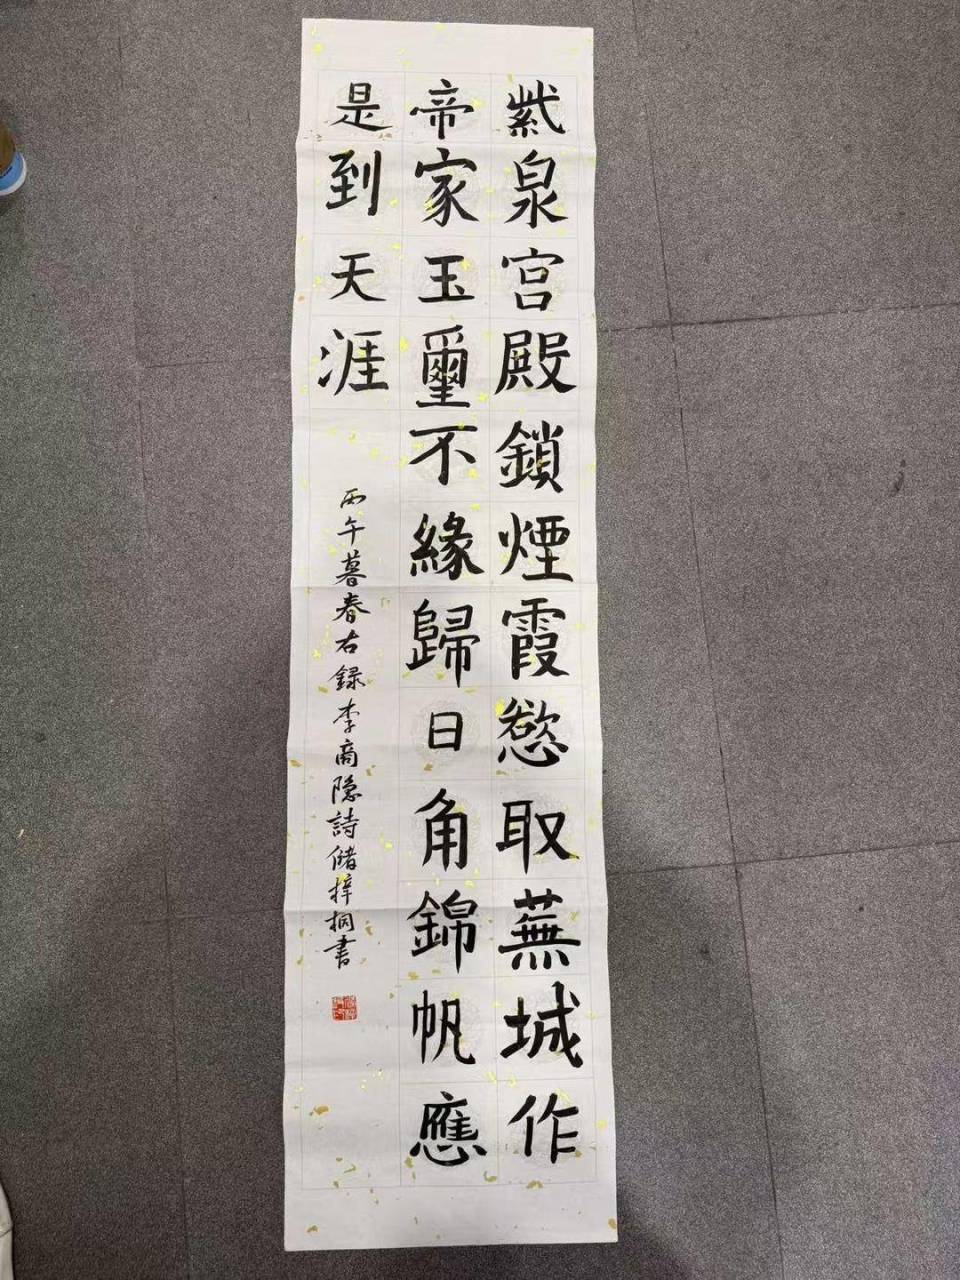 紫泉宫殿鎖煙霞慾取蕪城作
帝家玉璽不緣歸日角錦帆應
是到天涯
丙午暮春右録李商隐詩储梓桐书